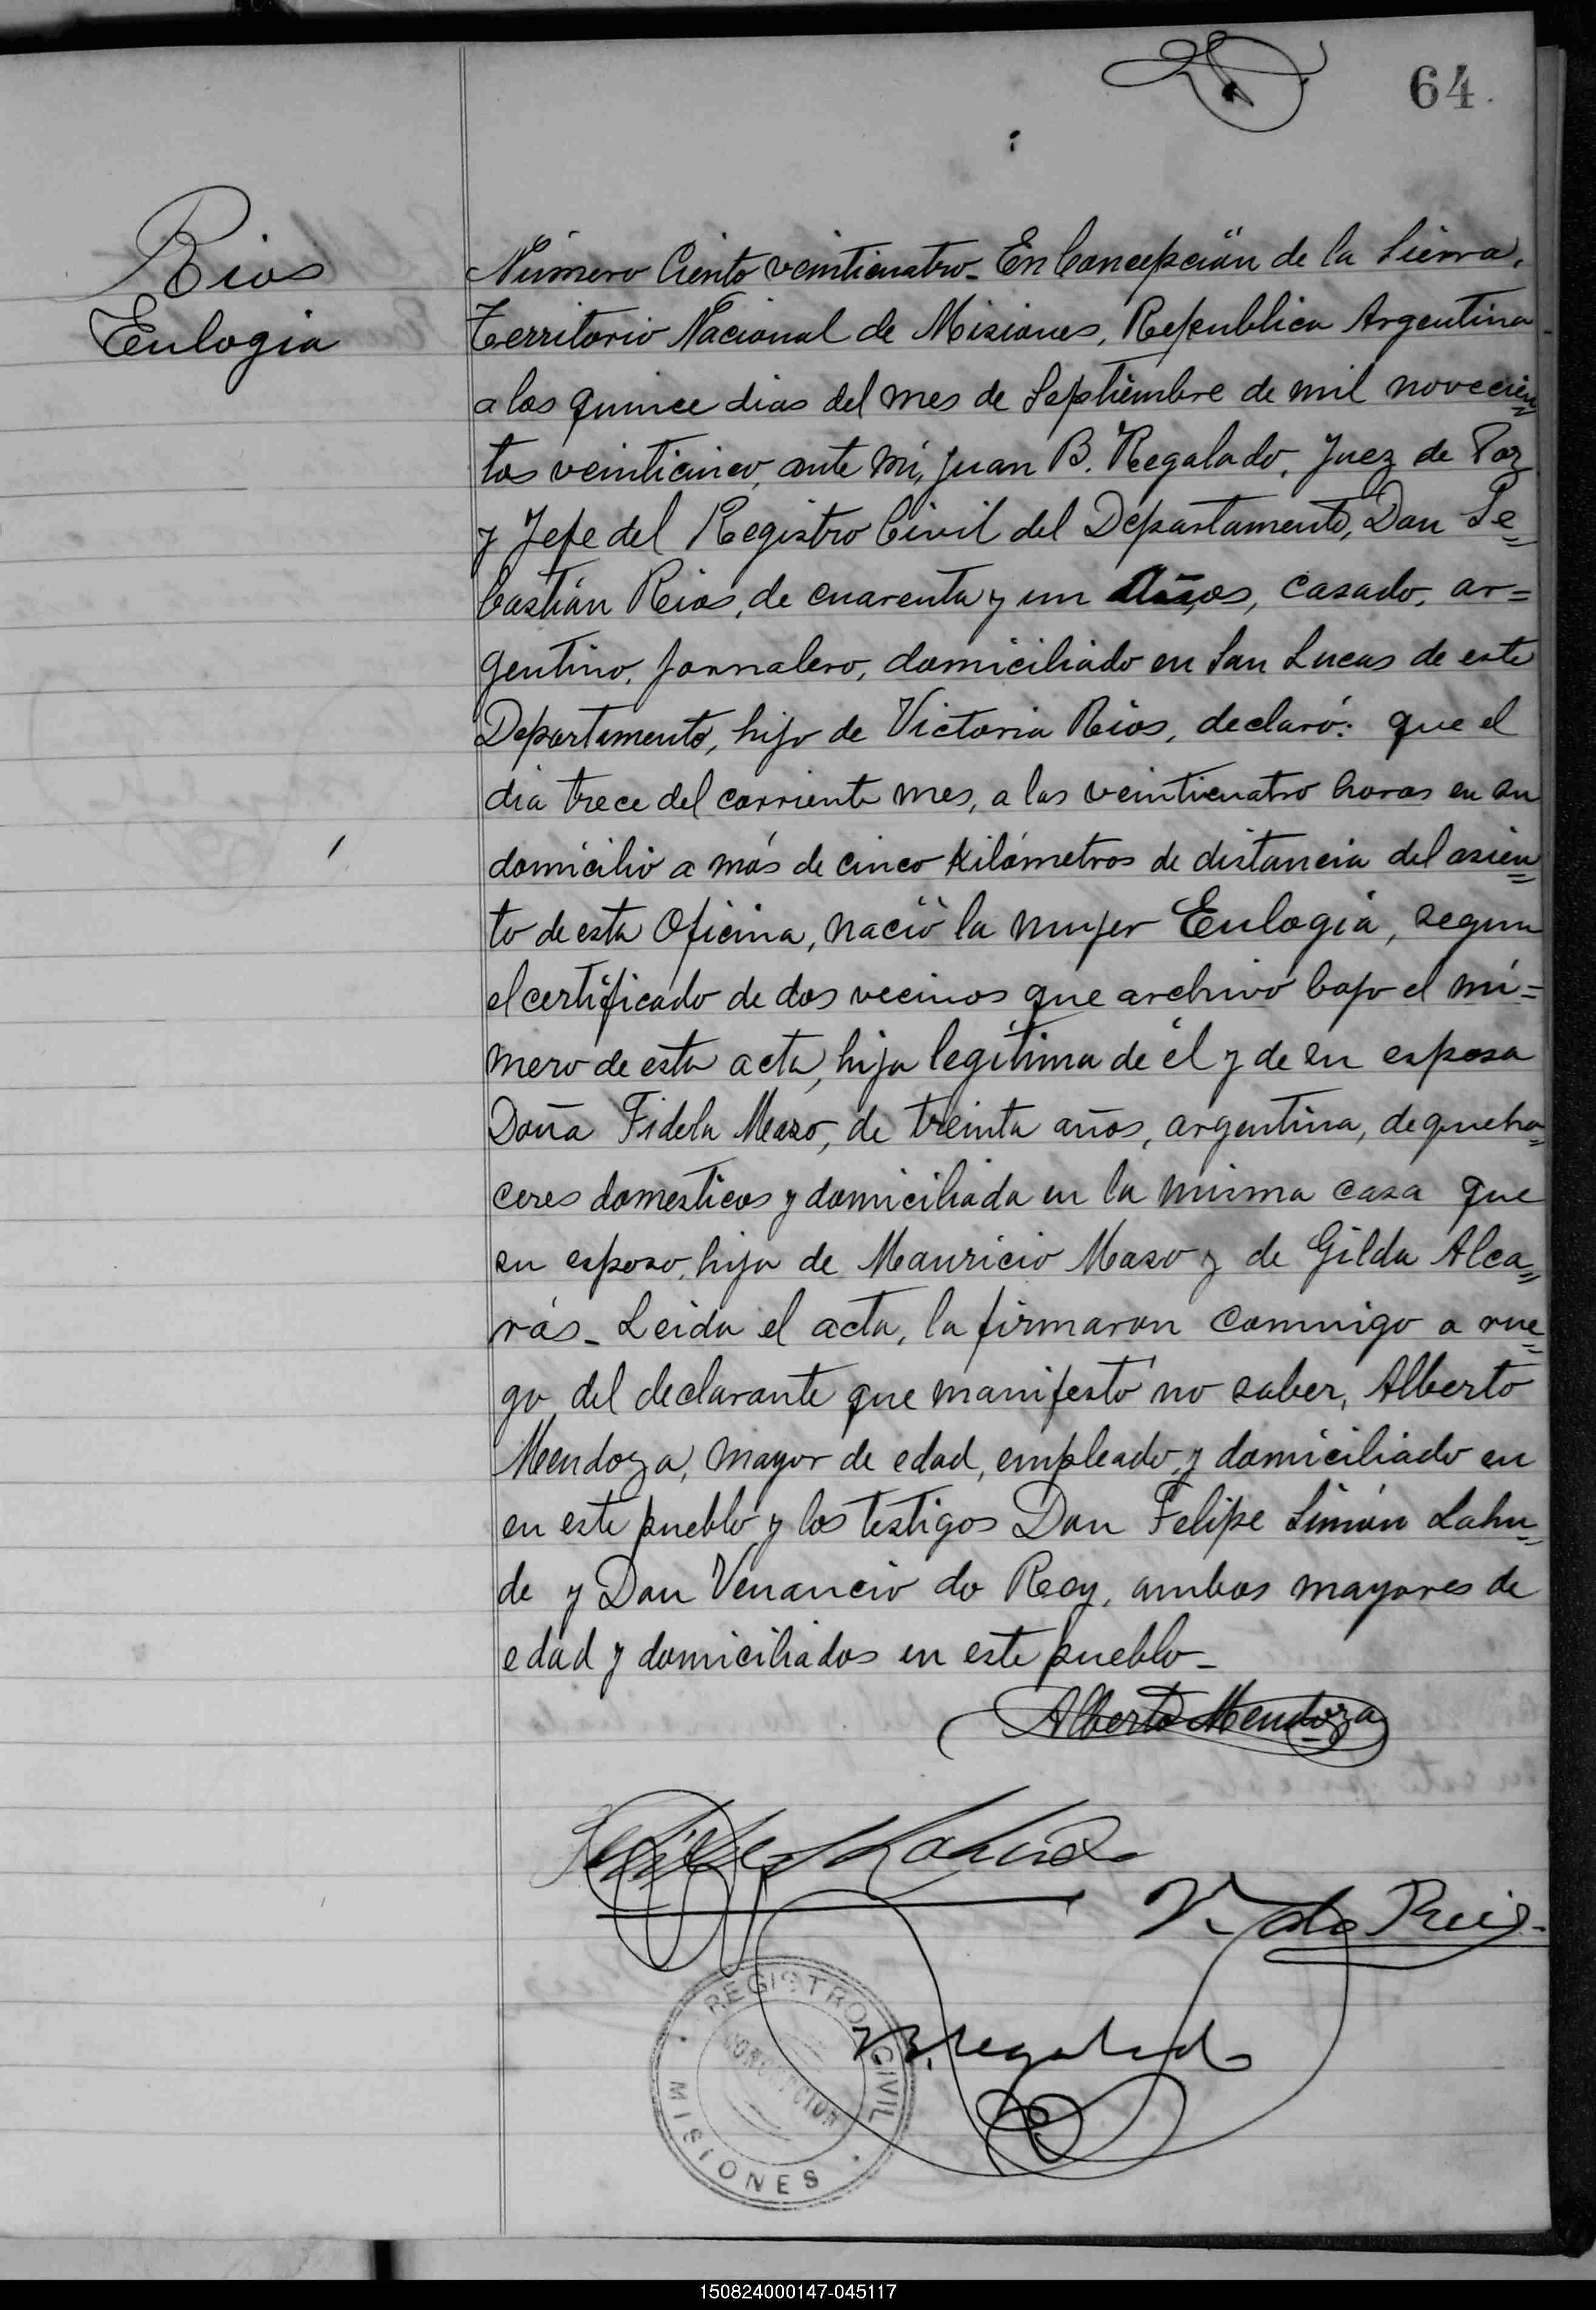 64.
Rios
Eulogia
Número Ciento veinticuatro_ En Concepción de la Sierra,
Territorio Nacional de Misiones, Republica Argentina
a los quince dias del mes de Septiembre de mil novecien=
tos veinticinco, ante mi, Juan B. Regalado, Juez de Paz
y Jefe del Registro Civil del Departamento, Don Se=
bastián Rios, de cuarenta y un años, casado, ar=
gentino, jornalero, domiciliado en San Lucas de este
Departamento, hijo de Victoria Rios, declaró: que el
dia trece del corriente mes, a las veinticuatro horas en su
domicilio a más de cinco Kilómetros de distancia del asien=
to de esta Oficina, nació la mujer Eulogia, segun
el certificado de dos vecinos que archivó bajo el nú=
mero de esta acta, hija legítima de él y de su esposa
Doña Fidela Maso, de treinta años, argentina, de queha=
ceres domesticos y domiciliada en la misma casa que
su esposo, hija de Mauricio Maso y de Gilda Alca=
rás_ Leida el acta, la firmaron conmigo a rue=
go del declarante que manifestó no saber, Alberto
Mendoza, mayor de edad, empleado, y domiciliado en
en este pueblo y los testigos Don Felipe Simón Lahu=
de y Don Venancio do Rey, ambos mayores de
edad y domiciliados en este pueblo_
Alberto Mendoza
Felipe S Lahude
V. do Reis
B. Regalado
REGISTRO CIVIL
CONCEPCION
MISIONES
150824000147-045117